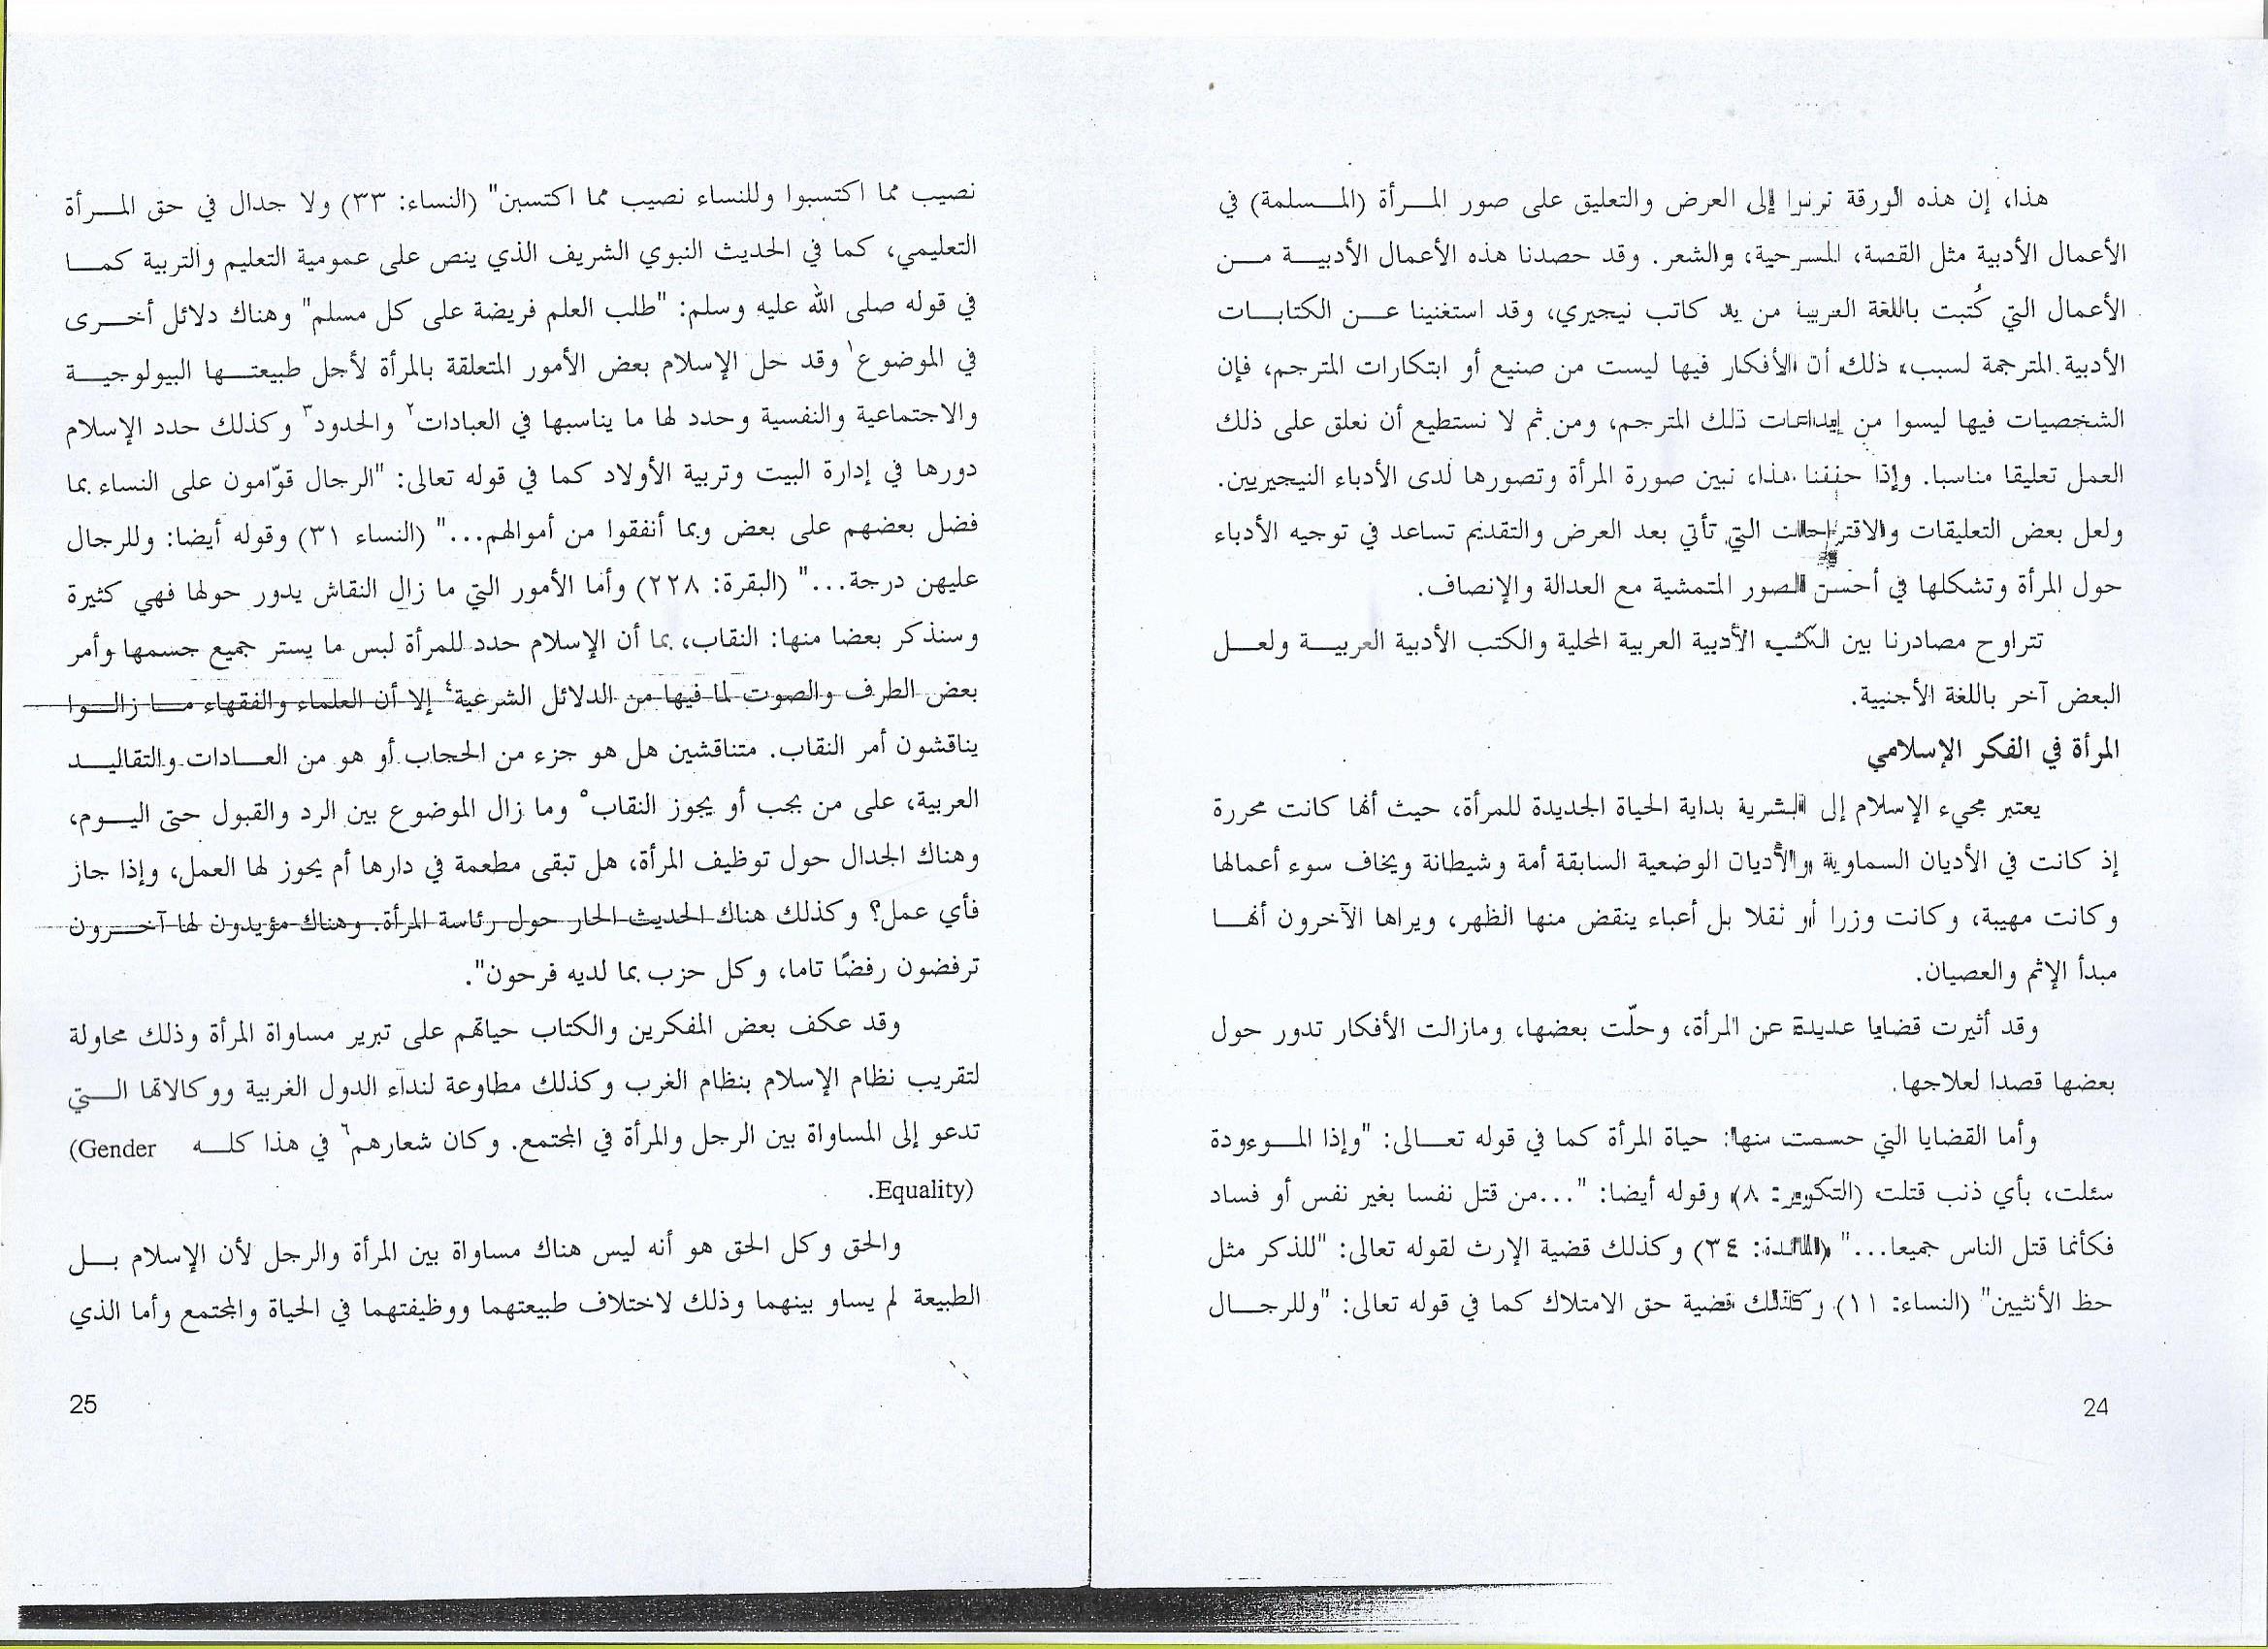 هذا، إن هذه الورقة ترنرا إلى العرض والتعليق على صور المرأة (المسلمة) في
الأعمال الأدبية مثل القصة، المسرحية، والشعر. وقد حصدنا هذه الأعمال الأدبية من
الأعمال التي كُتبت باللغة العربية من يد كاتب نيجيري، وقد استغنينا عن الكتابات
الأدبية المترجمة لسبب، ذلك أن الأفكار فيها ليست من صنيع أو ابتكارات المترجم، فإن
الشخصيات فيها ليسوا من إبداعات ذلك المترجم، ومن ثم لا نستطيع أن نعلق على ذلك
العمل تعليقا مناسبا. وإذا حققنا هذا، نبين صورة المرأة وتصورها لدى الأدباء النيجيريين.
ولعل بعض التعليقات والاقتراحات التي تأتي بعد العرض والتقديم تساعد في توجيه الأدباء
حول المرأة وتشكلها في أحسن الصور المتمشية مع العدالة والإنصاف.
تتراوح مصادرنا بين الكتب الأدبية العربية المحلية والكتب الأدبية العربية ولعل
البعض آخر باللغة الأجنبية.
المرأة في الفكر الإسلامي
يعتبر مجيء الإسلام إلى البشرية بداية الحياة الجديدة للمرأة، حيث أنها كانت محررة
إذ كانت في الأديان السماوية والأديان الوضعية السابقة أمة وشيطانة ويخاف سوء أعمالها
وكانت مهيبة، وكانت وزرا أو ثقلا بل أعباء ينقض منها الظهر، ويراها الآخرون أنها
مبدأ الإثم والعصيان.
وقد أثيرت قضايا عديدة عن المرأة، وحلّت بعضها، ومازالت الأفكار تدور حول
بعضها قصدا لعلاجها.
وأما القضايا التي حسمت منها: حياة المرأة كما في قوله تعالى: "وإذا الموءودة
سئلت، بأي ذنب قتلت (التكوير: ٨) وقوله أيضا: "...من قتل نفسا بغير نفس أو فساد
فكأنما قتل الناس جميعا..." (المائدة: ٣٤) وكذلك قضية الإرث لقوله تعالى: "للذكر مثل
حظ الأنثيين" (النساء: ١١) وكذلك قضية حق الامتلاك كما في قوله تعالى: "وللرجال
24
نصيب مما اكتسبوا وللنساء نصيب مما اكتسبن" (النساء: ٣٣) ولا جدال في حق المرأة
التعليمي، كما في الحديث النبوي الشريف الذي ينص على عمومية التعليم والتربية كما
في قوله صلى الله عليه وسلم: "طلب العلم فريضة على كل مسلم" وهناك دلائل أخرى
في الموضوع١ وقد حل الإسلام بعض الأمور المتعلقة بالمرأة لأجل طبيعتها البيولوجية
والاجتماعية والنفسية وحدد لها ما يناسبها في العبادات٢ والحدود٣ وكذلك حدد الإسلام
دورها في إدارة البيت وتربية الأولاد كما في قوله تعالى: "الرجال قوّامون على النساء بما
فضل بعضهم على بعض وبما أنفقوا من أموالهم..." (النساء ٣١) وقوله أيضا: وللرجال
عليهن درجة..." (البقرة: ٢٢٨) وأما الأمور التي ما زال النقاش يدور حولها فهي كثيرة
وسنذكر بعضا منها: النقاب، بما أن الإسلام حدد للمرأة لبس ما يستر جميع جسمها وأمر
بعض الطرف والصوت لما فيها من الدلائل الشرعية٤ إلا أن العلماء والفقهاء ما زالوا
يناقشون أمر النقاب. متناقشين هل هو جزء من الحجاب أو هو من العادات والتقاليد
العربية، على من يجب أو يجوز النقاب٥ وما زال الموضوع بين الرد والقبول حتى اليوم،
وهناك الجدال حول توظيف المرأة، هل تبقى مطعمة في دارها أم يحوز لها العمل، وإذا جاز
فأي عمل؟ وكذلك هناك الحديث الحار حول رئاسة المرأة. وهناك مؤيدون لها آخرون
ترفضون رفضًا تاما، وكل حزب بما لديه فرحون".
وقد عكف بعض المفكرين والكتاب حياتهم على تبرير مساواة المرأة وذلك محاولة
لتقريب نظام الإسلام بنظام الغرب وكذلك مطاوعة لنداء الدول الغربية ووكالاتها التي
تدعو إلى المساواة بين الرجل والمرأة في المجتمع. وكان شعارهم٦ في هذا كله (Gender
Equality).
والحق وكل الحق هو أنه ليس هناك مساواة بين المرأة والرجل لأن الإسلام بل
الطبيعة لم يساو بينهما وذلك لاختلاف طبيعتهما ووظيفتهما في الحياة والمجتمع وأما الذي
25